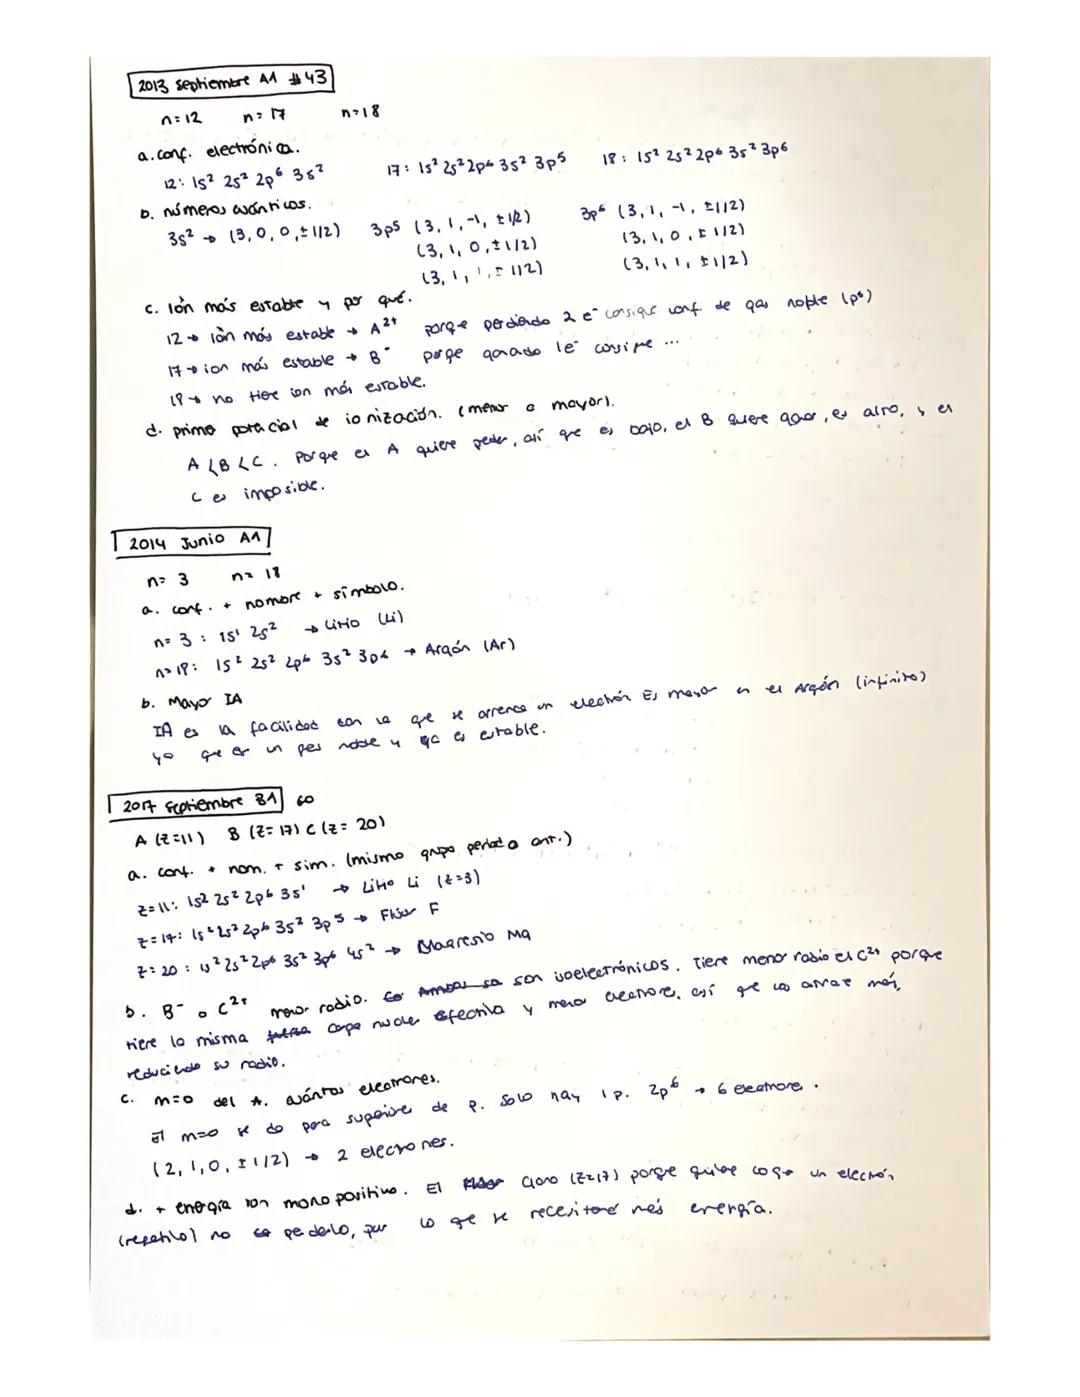 2013 Septiembre A1 #43
n=12 n=17 n=18
a. conf. electrónica.
12: 1s² 2s² 2p⁶ 3s² 17: 1s² 2s² 2p⁶ 3s² 3p⁵ 18: 1s² 2s² 2p⁶ 3s² 3p⁶
b. números cuánticos.
3s² → (3, 0, 0, ±1/2) 3p5 (3, 1, -1, ±1/2) 3p⁶ (3, 1, -1, ±1/2)
(3, 1, 0, ±1/2) (3, 1, 0, ±1/2)
(3, 1, 1, ±1/2) (3, 1, 1, ±1/2)
c. Ión más estable y por qué.
12 → ión más estable → A²⁺ porque perdiendo 2 e⁻ consigue conf. de gas noble (p⁶)
17 → ion más estable → B⁻ porque ganando 1e⁻ consigue ...
18 → no tiene ion más estable.
d. primer potencial de ionización. (menor a mayor).
A < B < C. Porque el A quiere perder, así que es bajo, el B quiere ganar, es alto, y el
C es imposible.
2014 Junio A1
n= 3 n= 18
a. conf. + nombre + símbolo.
n= 3 : 1s¹ 2s² → Litio (Li)
n=18: 1s² 2s² 2p⁶ 3s² 3p⁶ → Argón (Ar)
b. Mayor IA
IA es la facilidad con la que se arranca un electrón Es mayor en el Argón (infinito)
ya que es un gas noble y ya es estable.
2017 Septiembre B1 60
A (Z=11) B (Z=17) C (Z=20)
a. conf. + nom. + sim. (mismo grupo periodo ant.)
Z=11: 1s² 2s² 2p⁶ 3s¹ → Litio Li (Z=3)
Z=17: 1s² 2s² 2p⁶ 3s² 3p⁵ → Flúor F
Z=20 : 1s² 2s² 2p⁶ 3s² 3p⁶ 4s² → Magnesio Mg
b. B⁻ o C²⁺ menor radio. Ambos so son isoelectrónicos. Tiene menor radio el C²⁺ porque
tiene la misma carga nuclear efectiva y menos electrones, así que los atrae más,
reduciendo su radio.
c. m=0 del A. cuántos electrones.
El m=0 se da para superior de p. Solo hay 1 p. 2p⁶ → 6 electrones.
(2, 1, 0, ±1/2) → 2 electrones.
d. + energía ion monopositivo. El Flúor Cloro (Z=17) porque quiere coger un electrón
(repetirlo) no perderlo, por lo que se necesitará más energía.